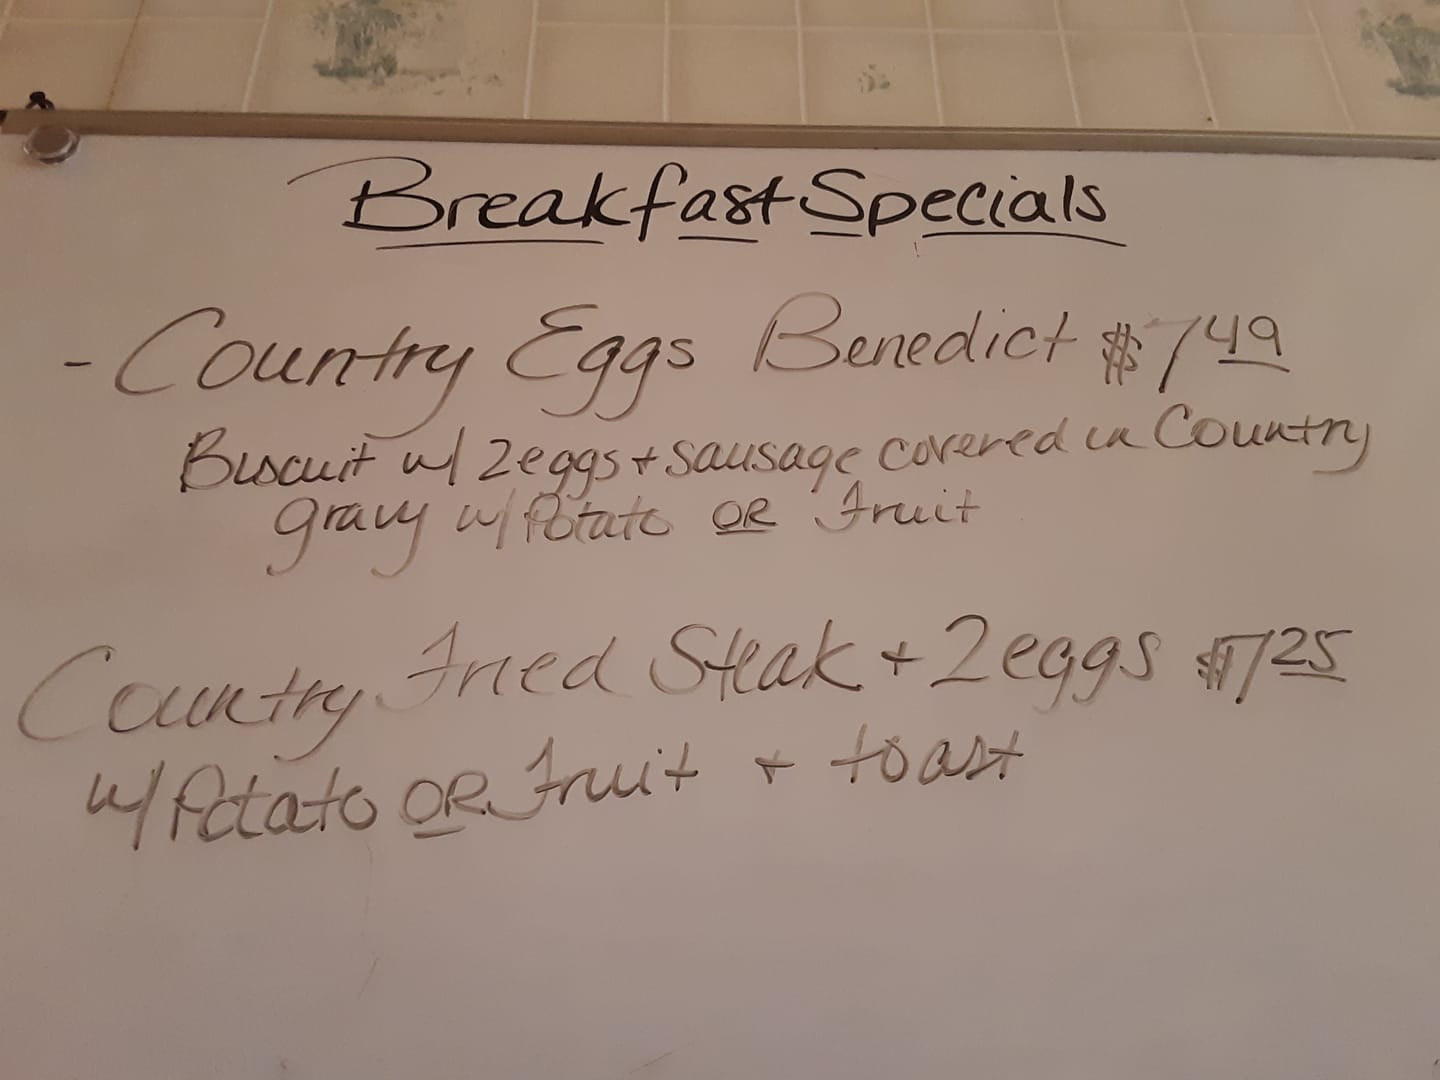 Breakfast Specials
- Country Eggs Benedict $7 49
Biscuit w/ 2 eggs + sausage covered in Country
gravy w/ Potato OR Fruit
Country Fried Steak + 2 eggs $7 25
w/ Potato OR Fruit + toast